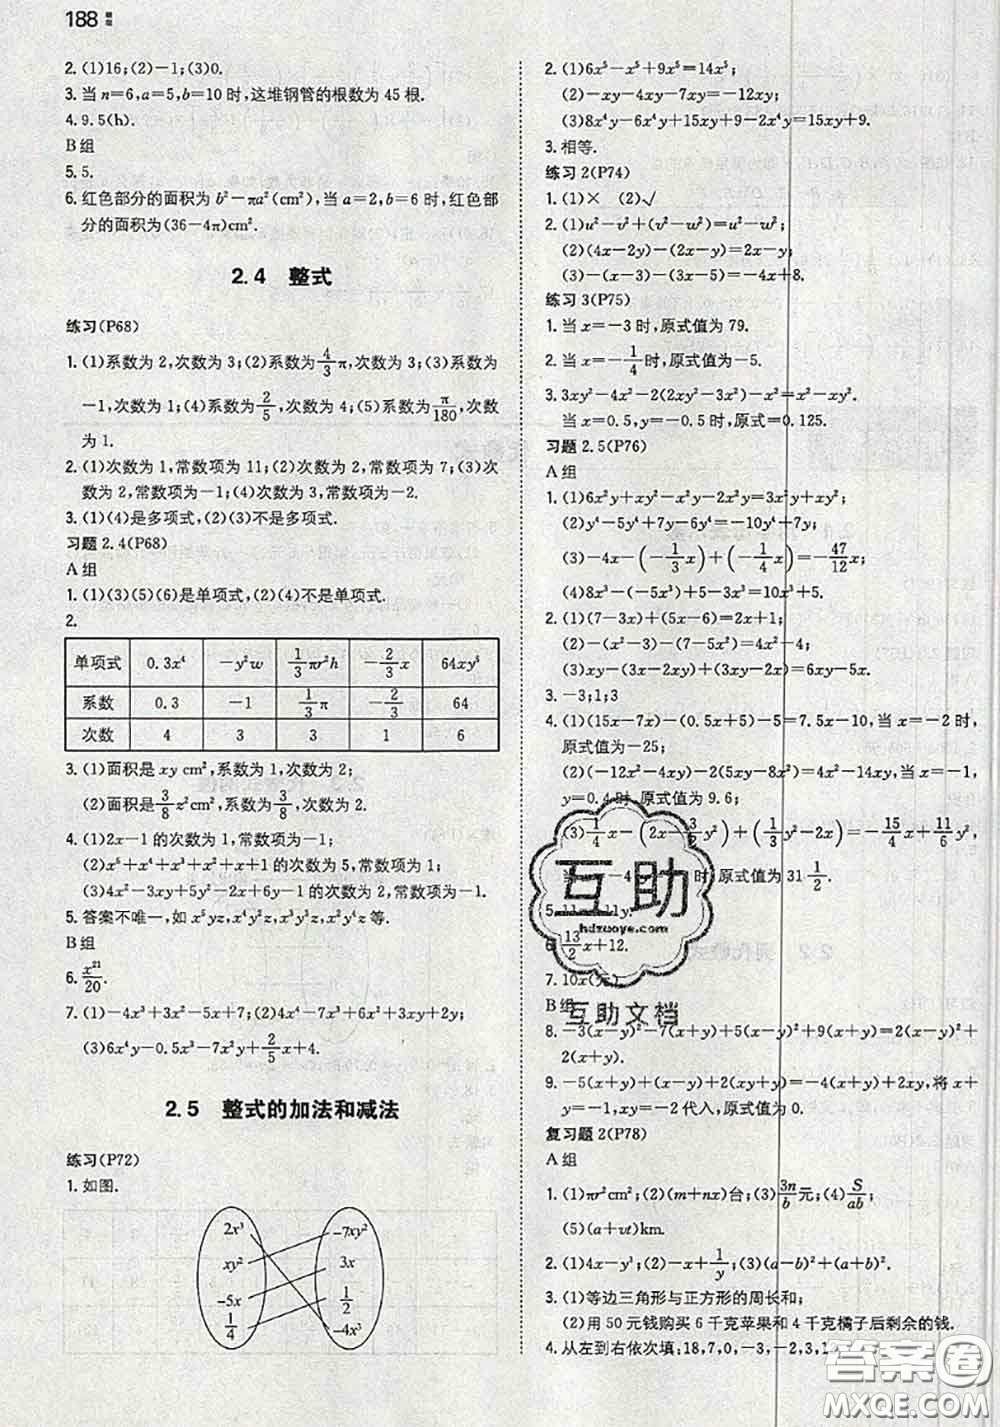 188
2. (1)16;(2)-1;(3)0.
3. 当 n=6,a=5,b=10 时,这堆钢管的根数为 45 根.
4. 9.5(h).
B 组
5. 5.
6. 红色部分的面积为 b²-πa²(cm²),当 a=2,b=6 时,红色部
分的面积为(36-4π)cm².
2.4 整式
练习(P68)
1. (1)系数为 2,次数为 3;(2)系数为 4/3 π,次数为 3;(3)系数为
-1,次数为 1;(4)系数为 2/5,次数为 4;(5)系数为 π/180,次数
为 1.
2. (1)次数为 1,常数项为 11;(2)次数为 4,常数项为 7;(3)次
数为 2,常数项为-1;(4)次数为 3,常数项为-2.
3. (1)(4)是多项式,(2)(3)不是多项式.
习题 2.4(P68)
A 组
1. (1)(3)(5)(6)是单项式,(2)(4)不是单项式.
2.
单项式 0.3x⁴ -y²w 1/3 πr²h -2/3 x 64xy⁵
系数 0.3 -1 1/3 π -2/3 64
次数 4 3 3 1 6
3. (1)面积是 xy cm²,系数为 1,次数为 2;
(2)面积为 3/8 z²cm²,系数为 3/8,次数为 2.
4. (1)2x-1 的次数为 1,常数项为-1;
(2)x⁵+x⁴+x³+x²+x+1 的次数为 5,常数项为 1;
(3)4x²-3xy+5y²-2x+6y-1 的次数为 2,常数项为-1.
5. 答案不唯一,如 x⁵yz,x⁴y²z,x³y³z,x²y⁴z 等.
B 组
6. x²¹/20.
7. (1)-4x³+3x²-5x+7;(2)4x⁴-7x³y+4xy;
(3)6x⁴y-0.5x³y+x²y+2/5 x+4.
2.5 整式的加法和减法
练习(P72)
1. 如图.
2x³ -7xy²
xy² 3x
-5x 1/2
1/4 -4x³
2. (1)6x⁵-x⁵+9x⁵=14x⁵;
(2)-xy-4xy-7xy=-12xy;
(3)8x⁴y-6x⁴y+15xy+9-2x⁴y=15xy+9.
3. 相等.
练习 2(P74)
1. (1)× (2)√
2. (1)u²-v²+(v²-w²)=u²-w²;
(2)(4x-2y)-(2x-y)=2x-y;
(3)-(x-3)-(3x-5)=-4x+8.
练习 3(P75)
1. 当 x=-3 时,原式值为 79.
2. 当 x=-1/4 时,原式值为-5.
3. 3xy²-4x²-2(2xy²-3x²)-x²=-xy²+x².
当 x=0.5,y=-0.5 时,原式=0.125.
习题 2.5(P76)
A 组
1. (1)6x²y+xy²-x²y-2x²y=3x²y+xy²;
(2)y⁴-5y⁴+7y-6y⁴=-10y⁴+7y;
(3)-4x-(-1/3 x)+(-1/4 x)=-47/12 x;
(4)8x³-(-5x³)+5-3x³=10x³+5.
2. (1)(7-3x)+(5x-6)=2x+1;
(2)-(x²-3)-(7-5x²)=4x²-4;
(3)(xy-5x)-(-xy-4xy)=6xy-5x.
3. -3;1;3
4. (1)(15x-7x)-(0.5x+5)-5=7.5x-10,当 x=-2 时,
原式值为-25;
y=0.4 时,原式值为 9.6;
(3)1/4 x-(2x-3/2 y²)+(-1/3 y²-2x)=-15/4 x+11/6 y²,
时,原式值为 31 1/2.
13/2 x+12.
7. 10x(元).
B 组
8. -3(x-y)²-7(x+y)+5(x-y)²+9(x+y)=2(x-y)²+
2(x+y).
9. -5(x+y)-(x-y)+2(x+y)=-4x-2y,将
x=1,y=-2 代入,原式值为 0.
复习题 2(P78)
A 组
1. (1)πr²cm²;(2)(m+nx)台;(3)3n/b 元;(4)S/ab;
(5)(a+vt)km.
2. (1)4x-y³;(2)-x+1/y;(3)(a-b)²+(a+b)².
3. (1)等边三角形与正方形的周长和;
(2)用 50 元钱购买 6 千克苹果和 4 千克橘子后剩余的钱.
4. 从左到右依次填:18,7,0,-3,-2,3,1
互助
hdzuoye.com
互助文档
答案圈
MXQE.COM